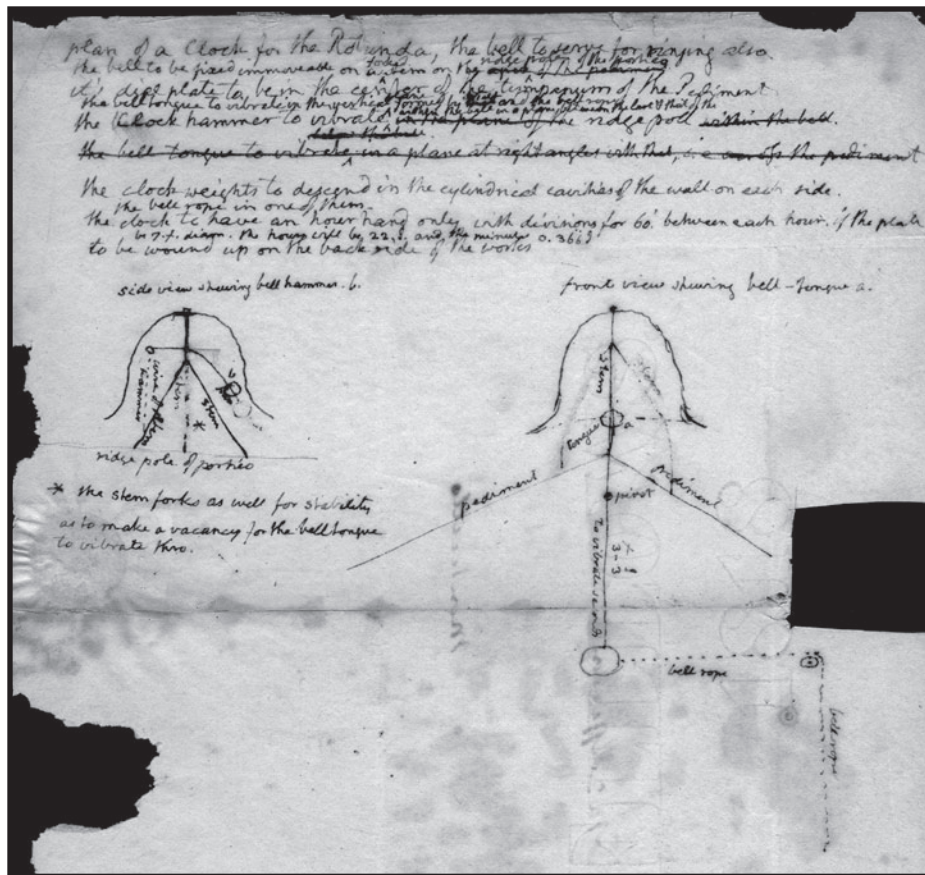 plan of a Clock for the Rotunda, the bell to serve for ringing also
the bell to be fixed immoveable on a forked stem on the ridge pole of the portico
it's dial plate to be in the center of the tympanum of the Pediment
the bell tongue to vibrate in the vertical plane formed by and the bell rope
the Clock hammer to vibrate in the plane of the ridge pole within the bell.
below the bell.
the bell tongue to vibrate in a plane at right angles with that, i.e. across the pediment
the clock weights to descend in the cylindrical cavities of the wall on each side.
the bell rope in one of them.
the clock to have an hour hand only with divisions for 60' between each hour. if the plate
be 7.f. diam. the hours will be 22.I. and the minutes 0.366 I
to be wound up on the back side of the works
side view shewing bell hammer. b.
front view shewing bell-tongue a.
wire of
hammer
stem
stem
*
b
ridge pole of portico
* the stem forks as well for stability
as to make a vacancy for the bell tongue
to vibrate thro.
stem
tongue
a
pediment
pediment
pivot
To vibrate seconds
3-3
bell rope
bell rope